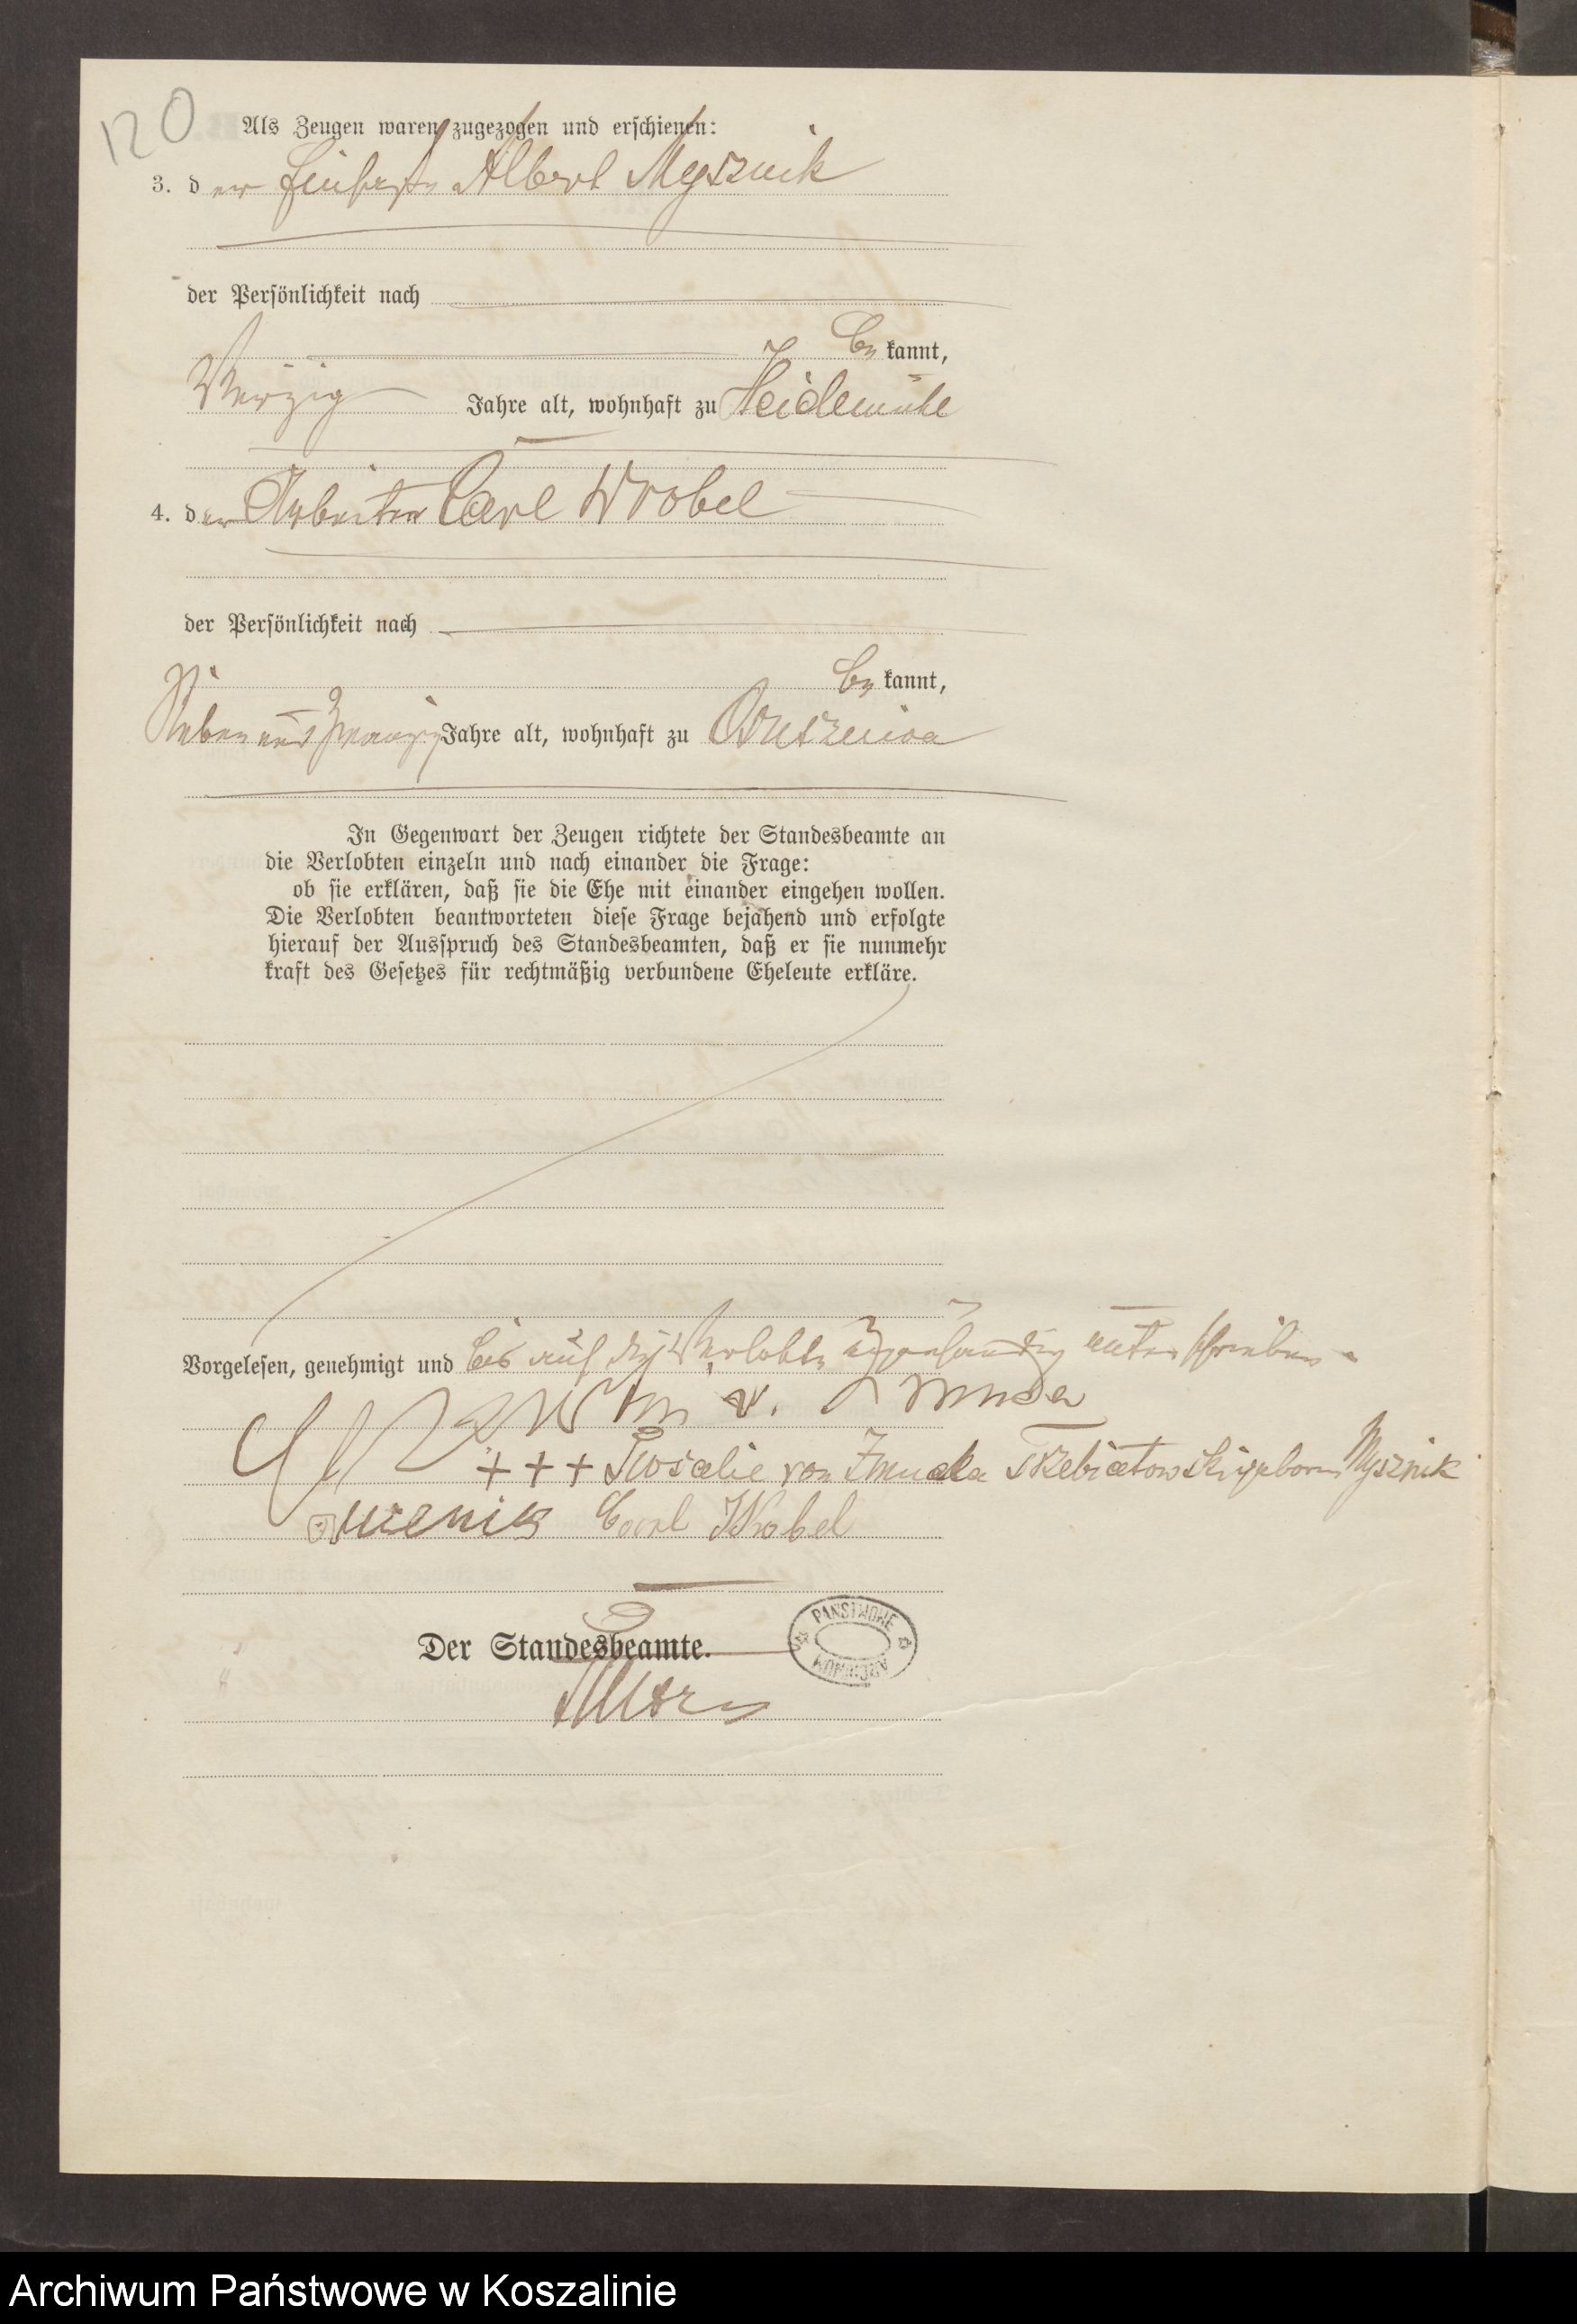 120
Als Zeugen waren zugezogen und erschienen:
3. der Albert Mysznik
der Persönlichkeit nach
be kannt,
Vierzig Jahre alt, wohnhaft zu Heidemühl
4. der Arbeiter Carl Wrobel
der Persönlichkeit nach
be kannt,
Sieben und zwanzig Jahre alt, wohnhaft zu
In Gegenwart der Zeugen richtete der Standesbeamte an
die Verlobten einzeln und nach einander die Frage:
ob sie erklären, daß sie die Ehe mit einander eingehen wollen.
Die Verlobten beantworteten diese Frage bejahend und erfolgte
hierauf der Ausspruch des Standesbeamten, daß er sie nunmehr
kraft des Gesetzes für rechtmäßig verbundene Eheleute erkläre.
Vorgelesen, genehmigt und bis auf die Verlobte eigenhändig unterschrieben
v.
+ + + Rosalie von Zmuda Trzebiatowski geboren Mysznik
Carl Wrobel
Der Standesbeamte.
PAŃSTWOWE
ARCHIWUM
Archiwum Państwowe w Koszalinie